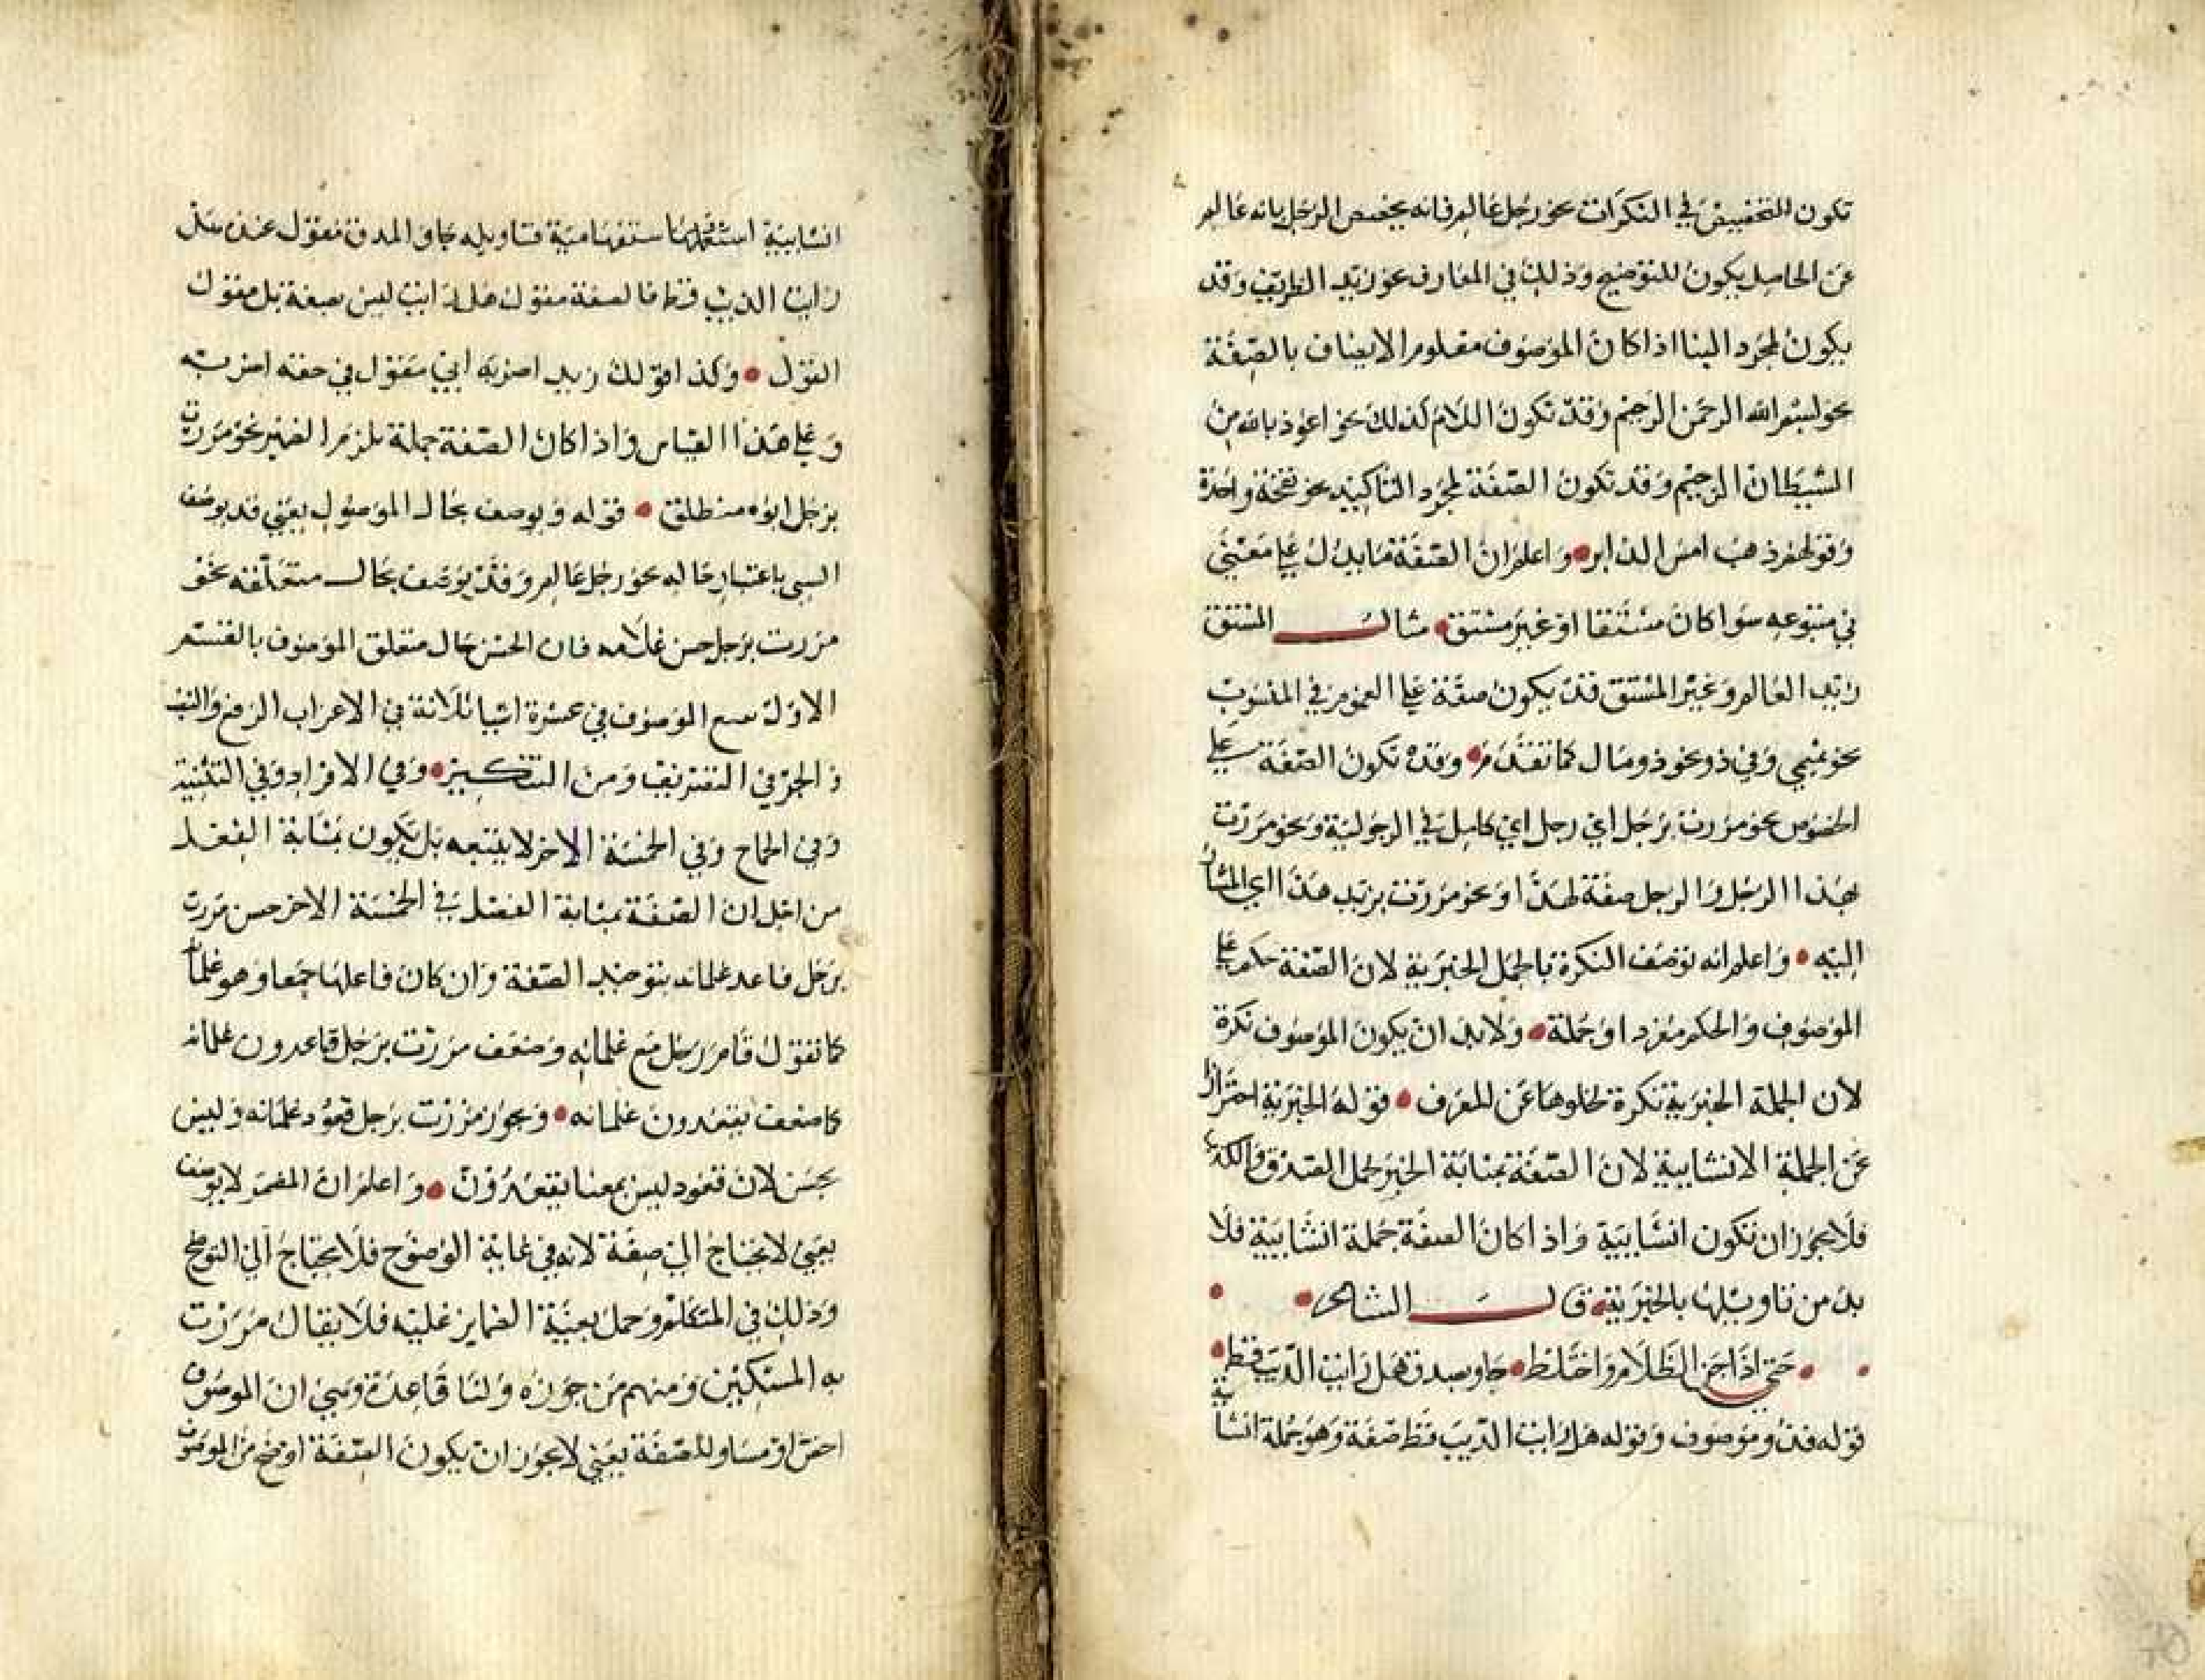 تكون للتخصيص في النكرات نحو رجل عالم فانه يخصص الرجل بانه عالم
عن الحاصل يكون للتوضيح وذلك في المعارف نحو زيد الظريف وقد
يكون لمجرد الثنا اذا كان الموصوف معلوم الاتصاف بالصفة
نحو بسم الله الرحمن الرحيم وقد تكون اللام كذلك نحو اعوذ بالله من
الشيطان الرجيم وقد تكون الصفة لمجرد التاكيد نحو نفخة واحدة
وقولهم ذهب امس الدابر واعلم ان الصفة ما يدل علي معني
في متبوعه سوا كان مشتقا او غير مشتق مثال المشتق
زيد العالم وغير المشتق قد يكون صفة علي العموم في المنسوب
نحو تميمي وفي ذو نحو ذو مال كما تقدم وقد تكون الصفة علي
الخصوص نحو مررت برجل اي رجل اي كامل في الرجولية ونحو مررت
بهذا الرجل والرجل صفة لهذا او نحو مررت بزيد هذا اي المشار
اليه واعلم انه توصف النكرة بالجمل الخبرية لان الصفة حكم علي
الموصوف والحكم مفرد او جملة ولا بد ان يكون الموصوف نكرة
لان الجملة الخبرية نكرة لخلوها عن المعرف قوله الخبرية احترازا
عن الجملة الانشايية لان الصفة بمثابة الخبر لحمل الصدق والكذب
فلا يجوز ان تكون انشايية واذا كان الصفة جملة انشايية فلا
بد من تاويلها بالخبرية قال الشاعر
حتي اذا جن الظلام واختلط جاو بمدق هل رايت الذيب قط
قوله مدق وموصوف وقوله هل رايت الذيب قط صفة وهو جملة انشايية
انشايية استفهامية فتاويله جاو المدق مقول عند مثل
رايت الذيب قط فالصفة مقول هل رايت ليس بصفة بل مقول
القول وكذا قولك زيد اضربه اي مقول في حقه اضربه
وعلي هذا القياس واذا كان الصفة جملة يلزم الضمير نحو مررت
برجل ابوه منطلق قوله ويوصف بحال الموصوف يعني قد يوصف
الشي باعتبار حاله نحو رجل عالم وقد يوصف بحال متعلقه نحو
مررت برجل حسن غلامه فان الحسن حال متعلق الموصوف بالقسم
الاول تتبع الموصوف في عشرة اشيا ثلاثة في الاعراب الرفع والنصب
و الجر في التعريف ومن التنكير وفي الافراد وفي التثنية
وفي الجماع وفي الخمسة الاخر لا يتبعه بل يكون بمثابة الفعل
من اجل ان الصفة بمثابة الفعل في الخمسة الاخر حسن مررت
برجل قاعد غلمانه بتوحيد الصفة وان كان فاعلها جمعا وهو غلمان
كما تقول قام رجل مع غلمانه وضعف مررت برجل قاعدون غلمانه
كما ضعف يقعدون غلمانه ويجوز مررت برجل قعود غلمانه وليس
بحسن لان قعود ليس بمعنا يقعدون واعلم ان المضمر لا يوصف
يعني لا يحتاج الي صفة لانه في غاية الوضوح فلا يحتاج الي التوضيح
وذلك في المتكلم وحمل بقية الضماير عليه فلا يقال مررت
به المسكين ومنهم من جوزه ولنا قاعدة وهي ان الموصوف
اخص او مساو للصفة يعني لا يجوز ان يكون الصفة اوضح من الموصوف